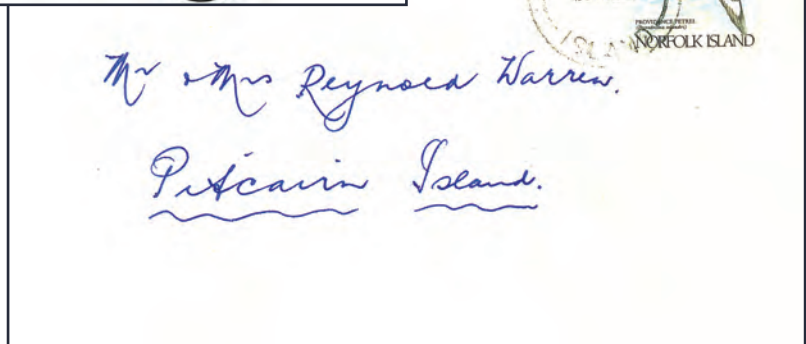 PROVIDENCE PETREL
NORFOLK ISLAND
ISLAND
Mr & Mrs Reynold Warren.
Pitcairn Island.